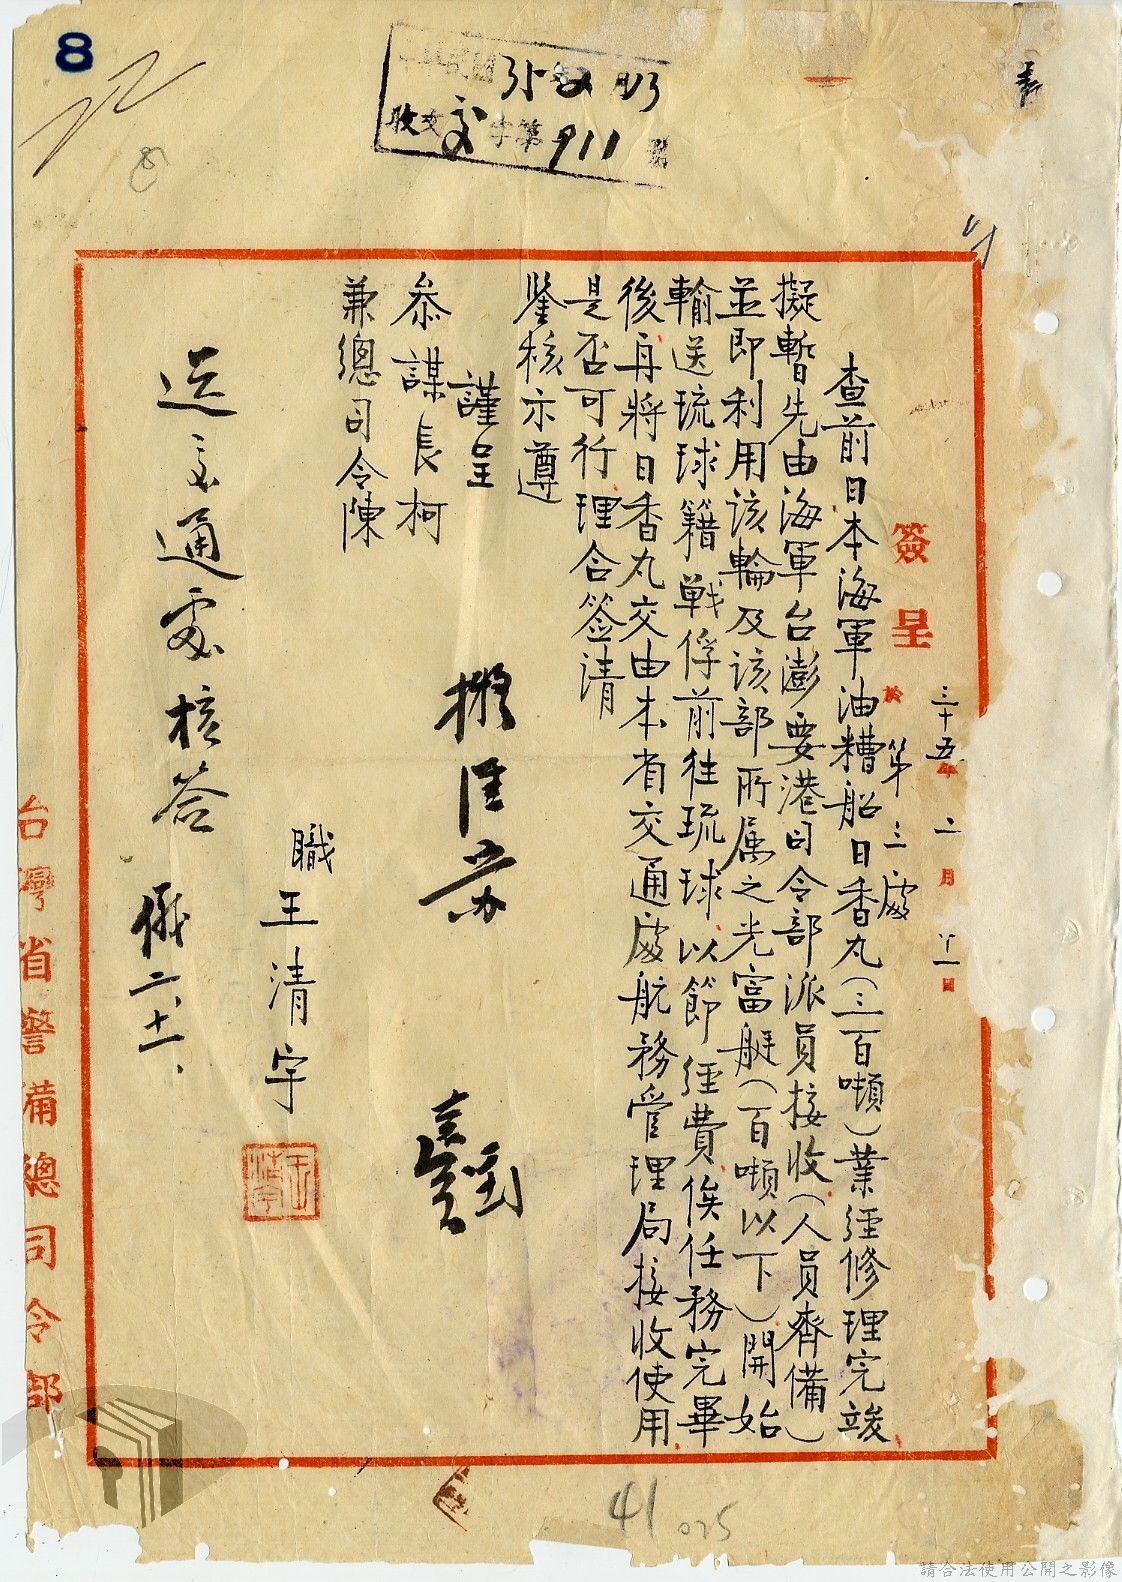 8
35 2 13
收文 交 字第 911 號
簽呈
於 三十五年二月廿一日
第三處
查前日本海軍油糟船日香丸（三百噸）業經修理完竣
擬暫先由海軍台澎要港司令部派員接收（人員齊備）
並即利用該輪及該部所属之光富艇（百噸以下）開始
輸送琉球籍戰俘前往琉球以節經費俟任務完畢
後再將日香丸交由本省交通處航務管理局接收使用
是否可行理合签请
鉴核示遵
謹呈
參謀長柯
兼總司令陳
職王清宇
送交通處核簽
二、十一、
台灣省警備總司令部
41
025
請合法使用公開之影像